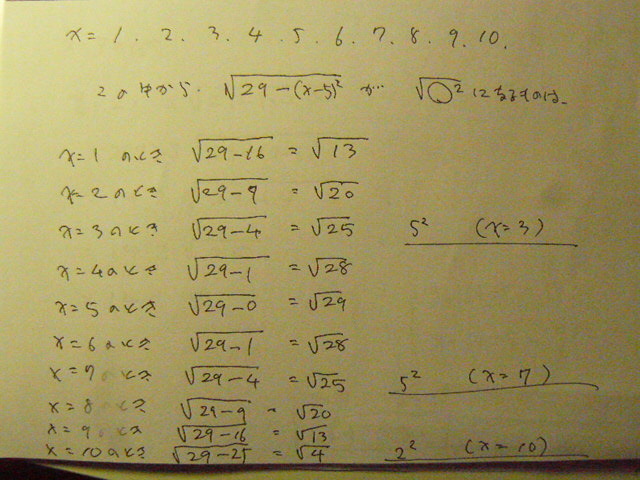 x = 1 . 2 . 3 . 4 . 5 . 6 . 7 . 8 . 9 . 10 .
この中から. √29-(x-5)² が… √○² になるものは.
x=1 のとき √29-16 = √13
x=2 のとき √29-9 = √20
x=3 のとき √29-4 = √25 5² (x=3)
x=4 のとき √29-1 = √28
x=5 のとき √29-0 = √29
x=6 のとき √29-1 = √28
x=7 のとき √29-4 = √25 5² (x=7)
x=8 のとき √29-9 = √20
x=9 のとき √29-16 = √13
x=10 のとき √29-25 = √4 2² (x=10)